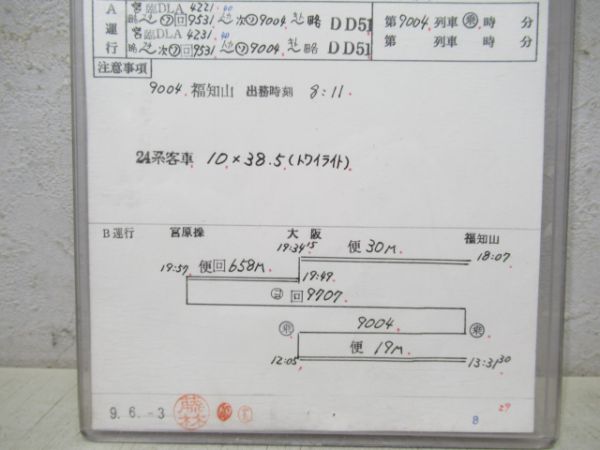 A 宮臨DLA 4221.40 第9004.列車 乗 時 分
略 次 回9531 9004. 略 DD51
運 宮臨DLA 4231.40 第 列車 時 分
行 次 回9531 9004. 略 DD51
注意事項
9004. 福知山 出務時刻 8:11.
24系客車 10×38.5(トワイライト)
B運行 宮原操 大阪 福知山
19:34 15 便 30M. 18:07
19:57 便回658M 19:49.
回9707
9004.
乗
便 19M.
12:05 13:31 30
9.6.-3
藤林
8 29